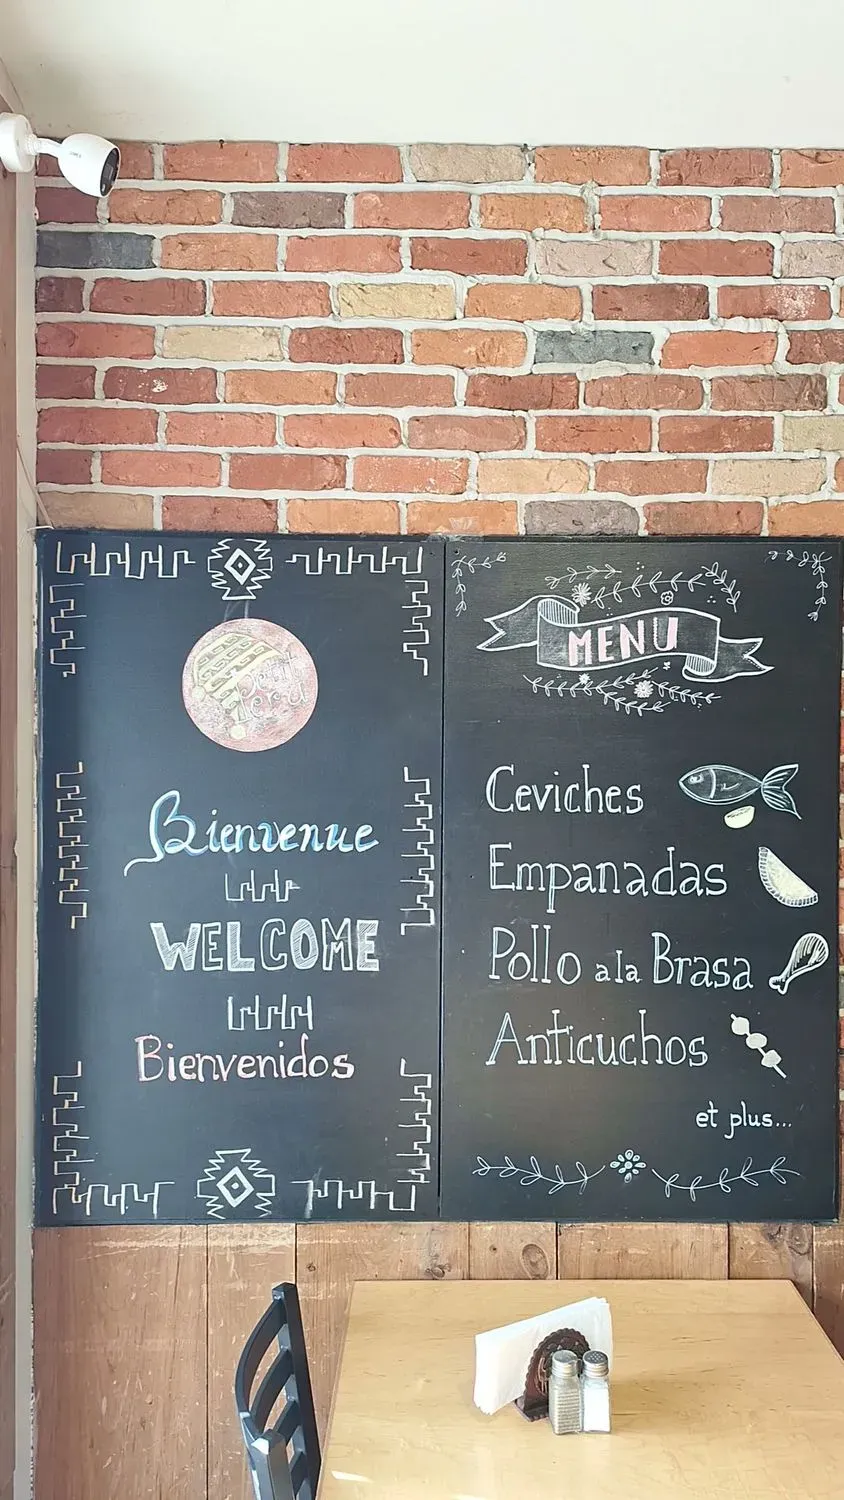 Petit
Peru
Bienvenue
WELCOME
Bienvenidos
MENU
Ceviches
Empanadas
Pollo a la Brasa
Anticuchos
et plus...